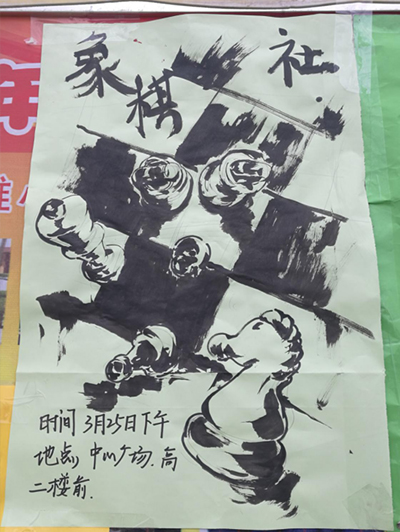 象棋社
年
时间 3月25日下午
地点 中心广场.高
二楼前.